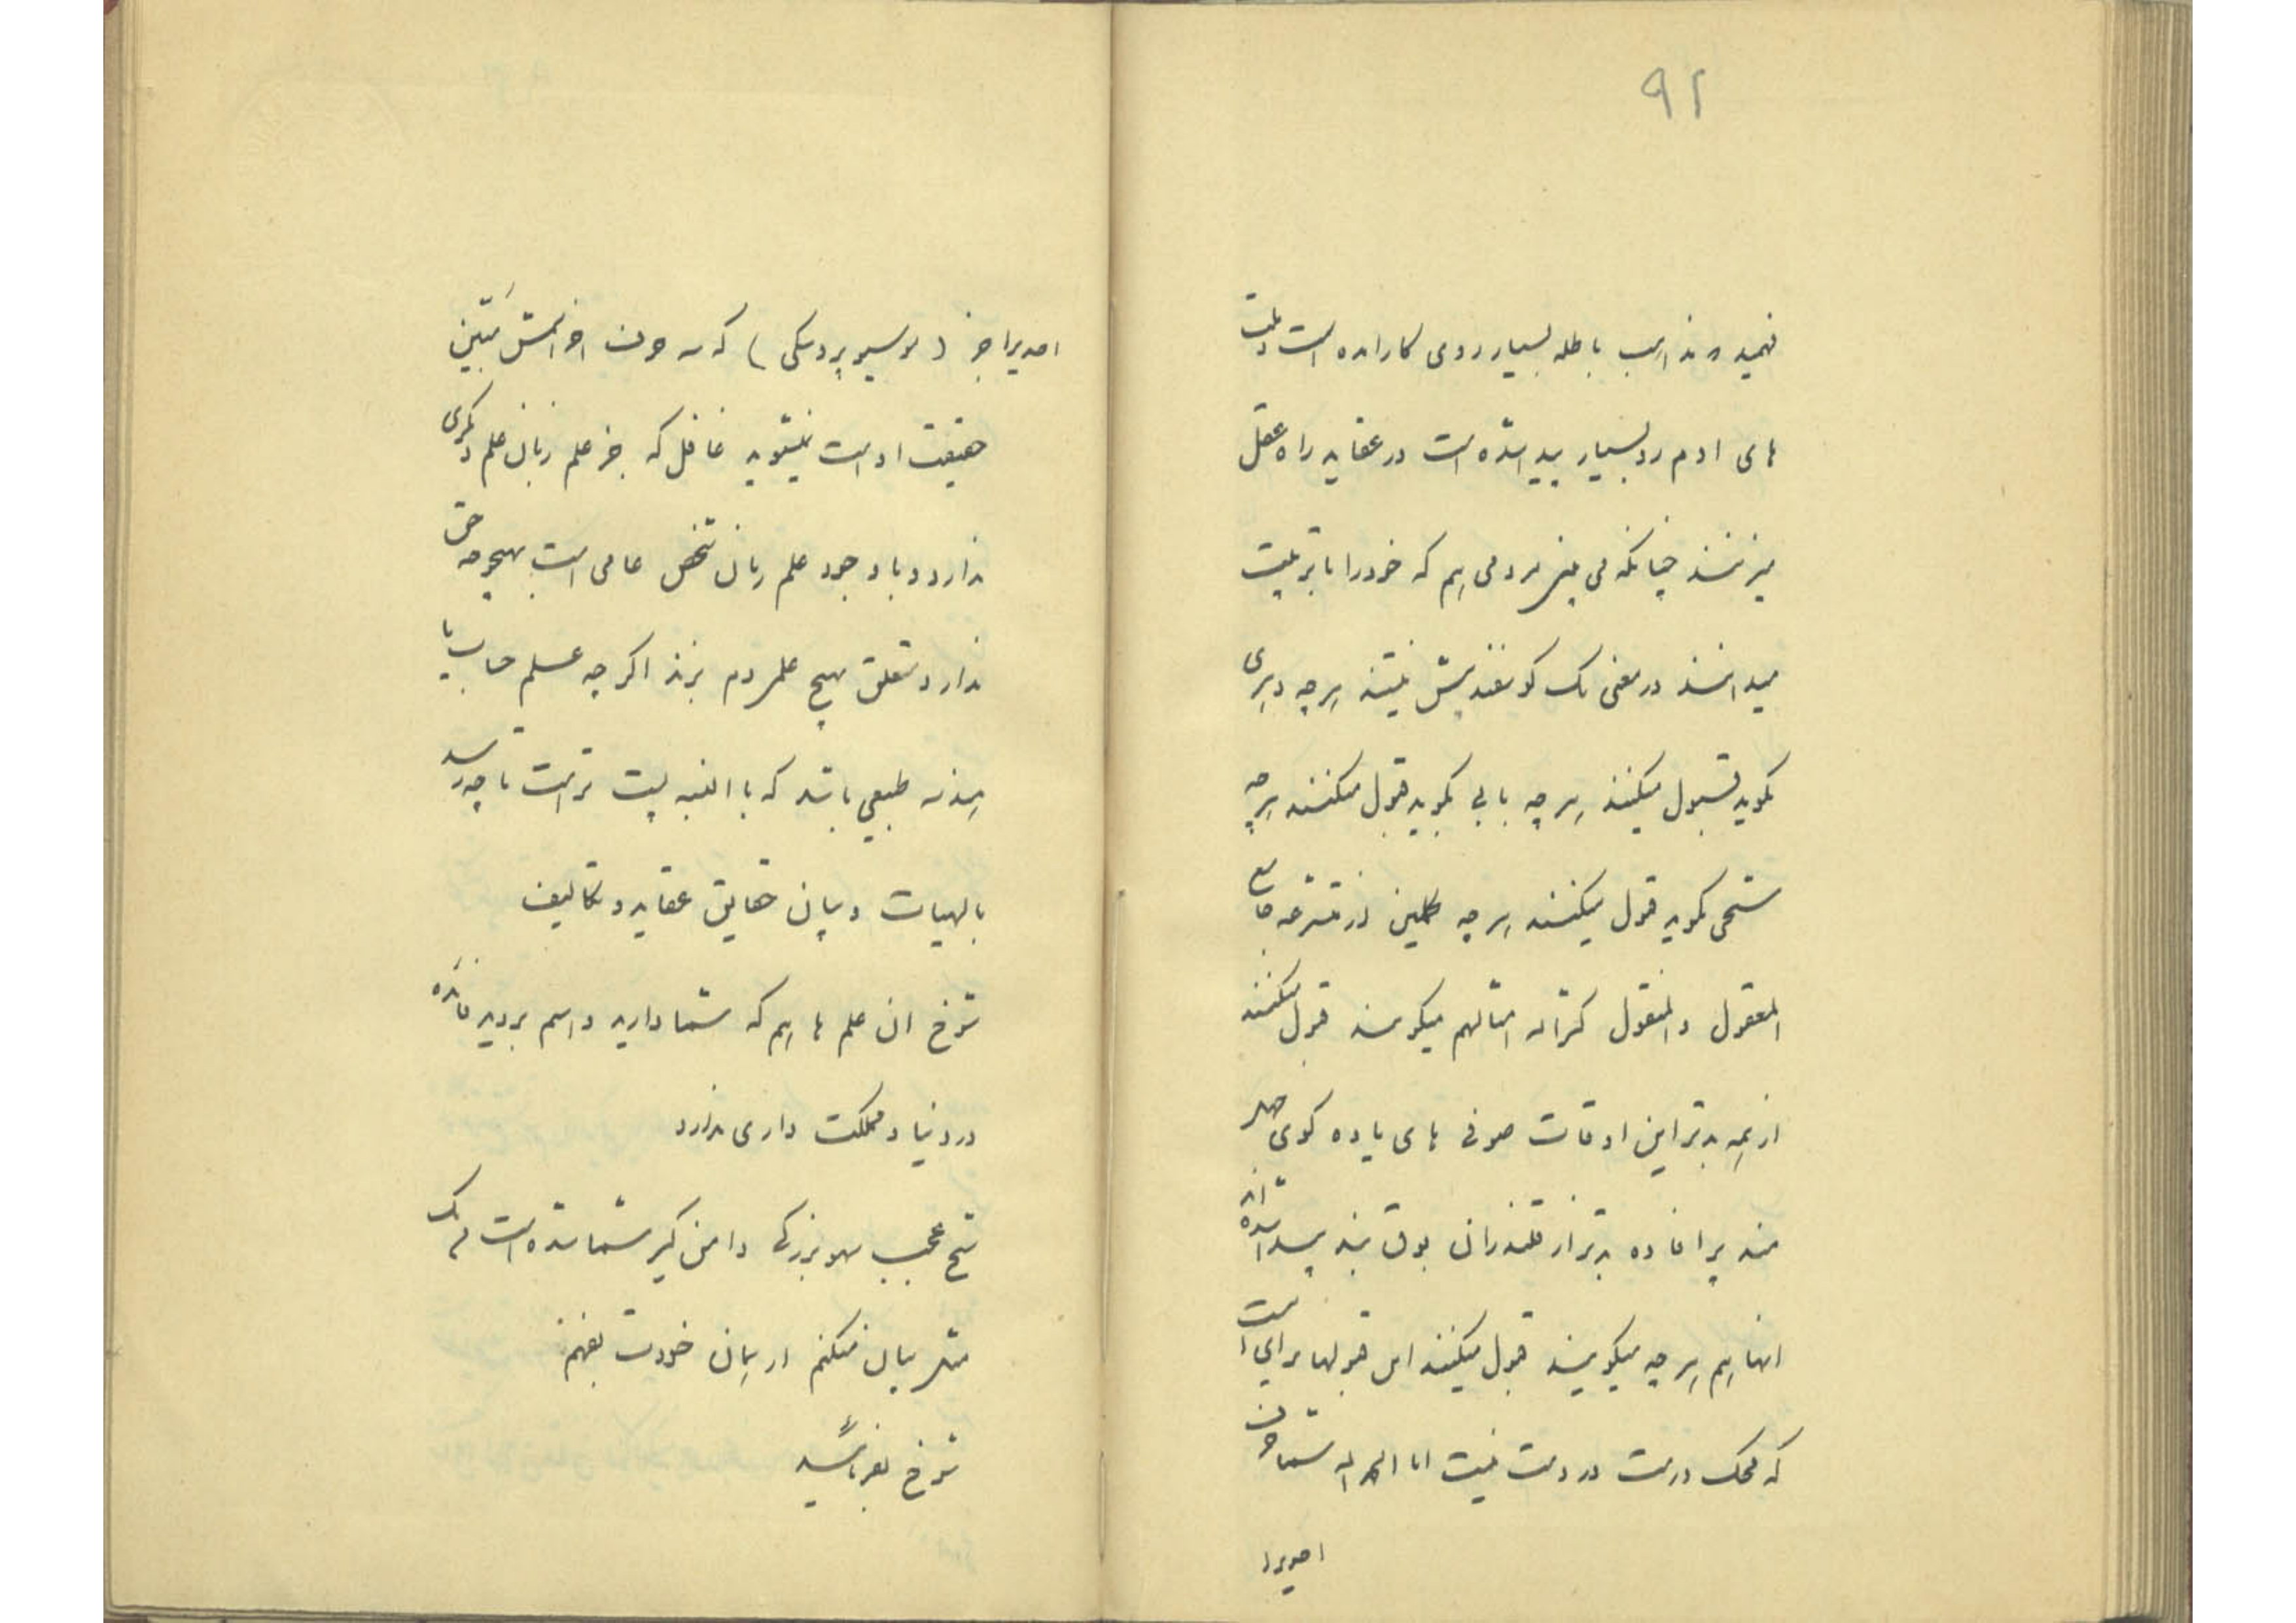 ۹۲
فهمیده مذاهب باطله بسیار روی کار امده است و ملت
های ادم رو بسیار پیدا شده است در عقاید راه عقل
میزنند چنانکه می بینم مردمی هم که خود را با تربیت
میدانند در معنی یک گوسفند بیش نیستند هر چه دهری
بگوید قبول میکنند هر چه بابی بگوید قبول میکنند هر چه
شیخی بگوید قبول میکنند هر چه از متشرعه جامع
المعقول والمنقول کثر الله امثالهم میگویند قبول میکنند
از همه بدتر این اوقات صوفی های یاوه گوی
مند پر افاده بدتر از قلندران بوق بند پیدا شده اند
انها هم هر چه میگویند قبول میکنند این قبولها برای است
که محک درست در دست نیست اما الحمد لله شما چون
احدیرا
احدیرا جز (موسیو بروسکی) که سه حرف اخر اسمش مبین
حقیقت اوست نمیشوید غافل که جز علم زبان علم دیگری
ندارد و با وجود علم زبان شخص عامی است بهیچوجه حق
ندارد متعلق بهیچ علمی دم بزند اگر چه علم حساب یا
هندسه طبیعی باشد که بالنسبه پست تر است تا چه رسد
بالهیات و بیان حقایق عقاید و تکالیف
شوخ ان علم ها هم که شما دارید و اسم بردید فائده
در دنیا و مملکت داری ندارد
شیخ عجب سهو بزرگی دامن گیر شما شده است من یک
مثلی بیان میکنم از همان خودت بفهم
شوخ بفرمائید